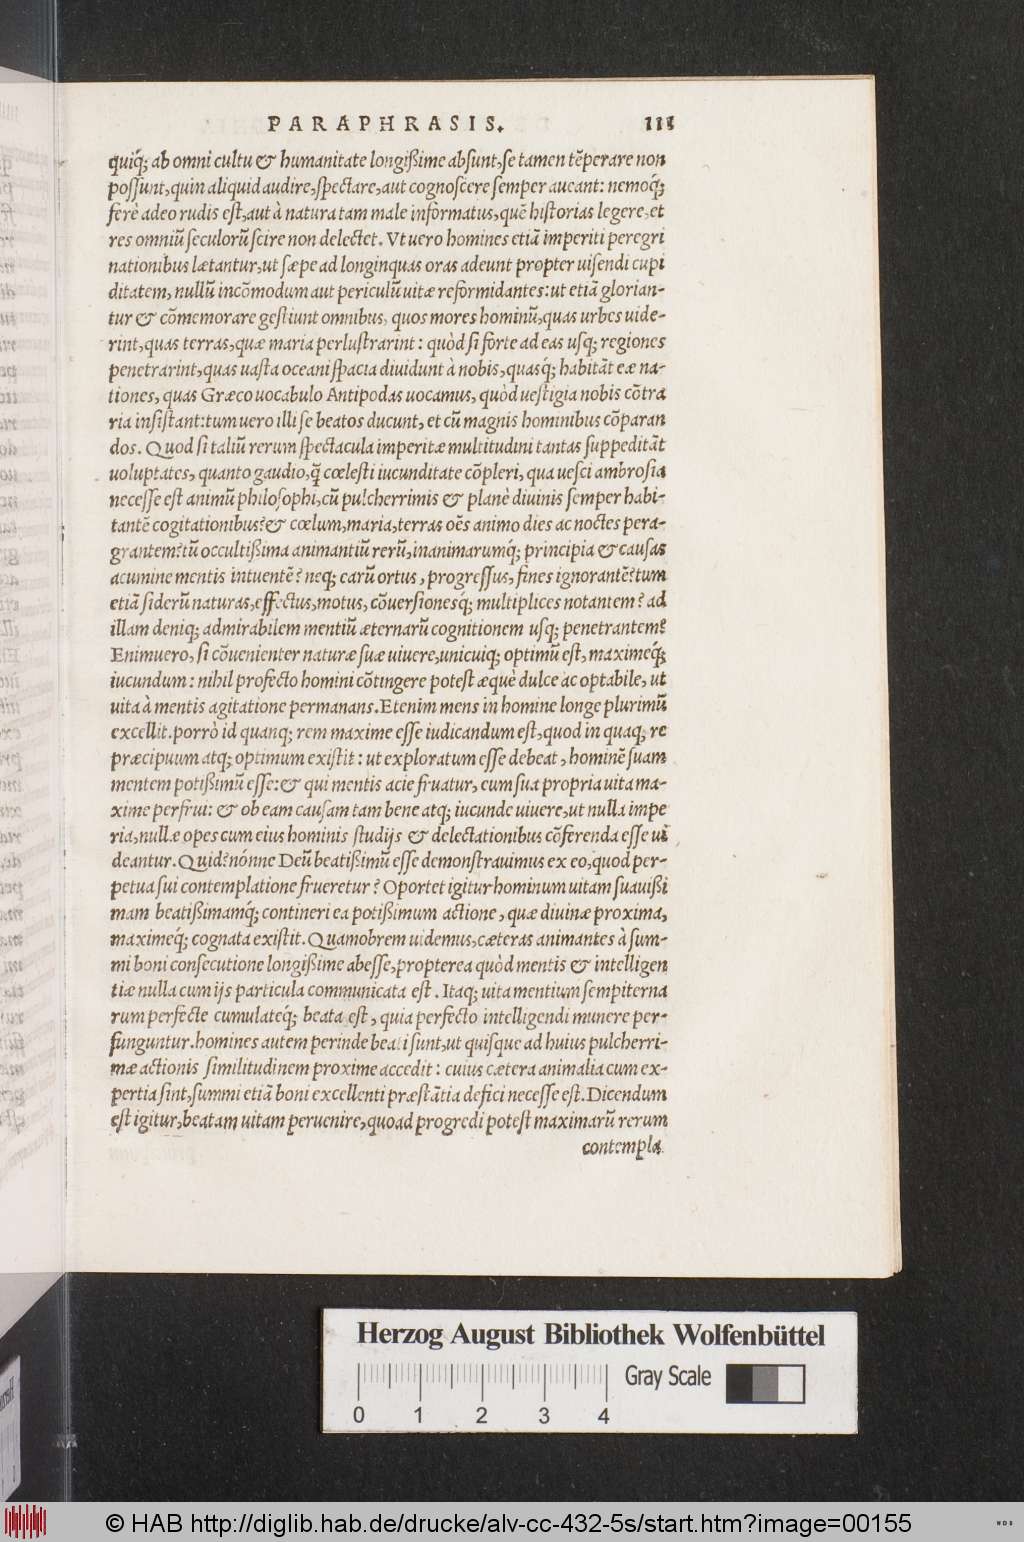 PARAPHRASIS. 111
quiq́; ab omni cultu & humanitate longißime absunt, se tamen tēperare non
possunt, quin aliquid audire, spectare, aut cognoscere semper aueant: nemoq́;
ferè adeo rudis est, aut à natura tam male informatus, quē historias legere, et
res omniū seculorū scire non delectet. Vt uero homines etiā imperiti peregri
nationibus lætantur, ut sæpe ad longinquas oras adeunt propter uisendi cupi
ditatem, nullū incōmodum aut periculū uitæ reformidantes: ut etiā glorian-
tur & cōmemorare gestiunt omnibus, quos mores hominū, quas urbes uide-
rint, quas terras, quæ maria perlustrarint: quòd si forte ad eas usq; regiones
penetrarint, quas uasta oceani spacia diuidunt à nobis, quasq́; habitāt eæ na-
tiones, quas Græco uocabulo Antipodas uocamus, quòd uestigia nobis cōtra
ria insistant: tum uero illi se beatos ducunt, et cū magnis hominibus cōparan
dos. Quod si taliū rerum spectacula imperitæ multitudini tantas suppeditāt
uoluptates, quanto gaudio, q̃ cœlesti iucunditate cōpleri, qua uesci ambrosia
necesse est animū philosophi, cū pulcherrimis & planè diuinis semper habi-
tantē cogitationibus? & cœlum, maria, terras oēs animo dies ac noctes pera-
grantem? tū occultißima animantiū rerū, inanimarumq́; principia & causas
acumine mentis intuentē? neq; earū ortus, progressus, fines ignorantē? tum
etiā siderū naturas, effectus, motus, cōuersionesq́; multiplices notantem? ad
illam deniq; admirabilem mentiū æternarū cognitionem usq; penetrantem?
Enimuero, si cōuenienter naturæ suæ uiuere, unicuiq; optimū est, maximeq́;
iucundum: nihil profecto homini cōtingere potest æquè dulce ac optabile, ut
uita à mentis agitatione permanans. Etenim mens in homine longe plurimū
excellit. porrò id quanq; rem maxime esse iudicandum est, quod in quaq; re
præcipuum atq; optimum existit: ut exploratum esse debeat, hominē suam
mentem potißimū esse: & qui mentis acie fruatur, eum sua propria uita ma-
xime perfrui: & ob eam causam tam bene atq; iucunde uiuere, ut nulla impe
ria, nullæ opes cum eius hominis studijs & delectationibus cōferenda esse ui
deantur. Quid? nónne Deū beatißimū esse demonstrauimus ex eo, quod per-
petua sui contemplatione frueretur? Oportet igitur hominum uitam suauißi
mam beatißimamq́; contineri ea potißimum actione, quæ diuinæ proxima,
maximeq́; cognata existit. Quamobrem uidemus, cæteras animantes à sum-
mi boni consecutione longißime abesse, propterea quòd mentis & intelligen
tiæ nulla cum ijs particula communicata est. Itaq; uita mentium sempiterna
rum perfecte cumulateq́; beata est, quia perfecto intelligendi munere per-
funguntur. homines autem perinde beati sunt, ut quisque ad huius pulcherri-
mæ actionis similitudinem proxime accedit: cuius cætera animalia cum ex-
pertia sint, summi etiā boni excellenti præstātia defici necesse est. Dicendum
est igitur, beatam uitam peruenire, quoad progredi potest maximarū rerum
contempla
Herzog August Bibliothek Wolfenbüttel
Gray Scale
0 1 2 3 4
© HAB http://diglib.hab.de/drucke/alv-cc-432-5s/start.htm?image=00155